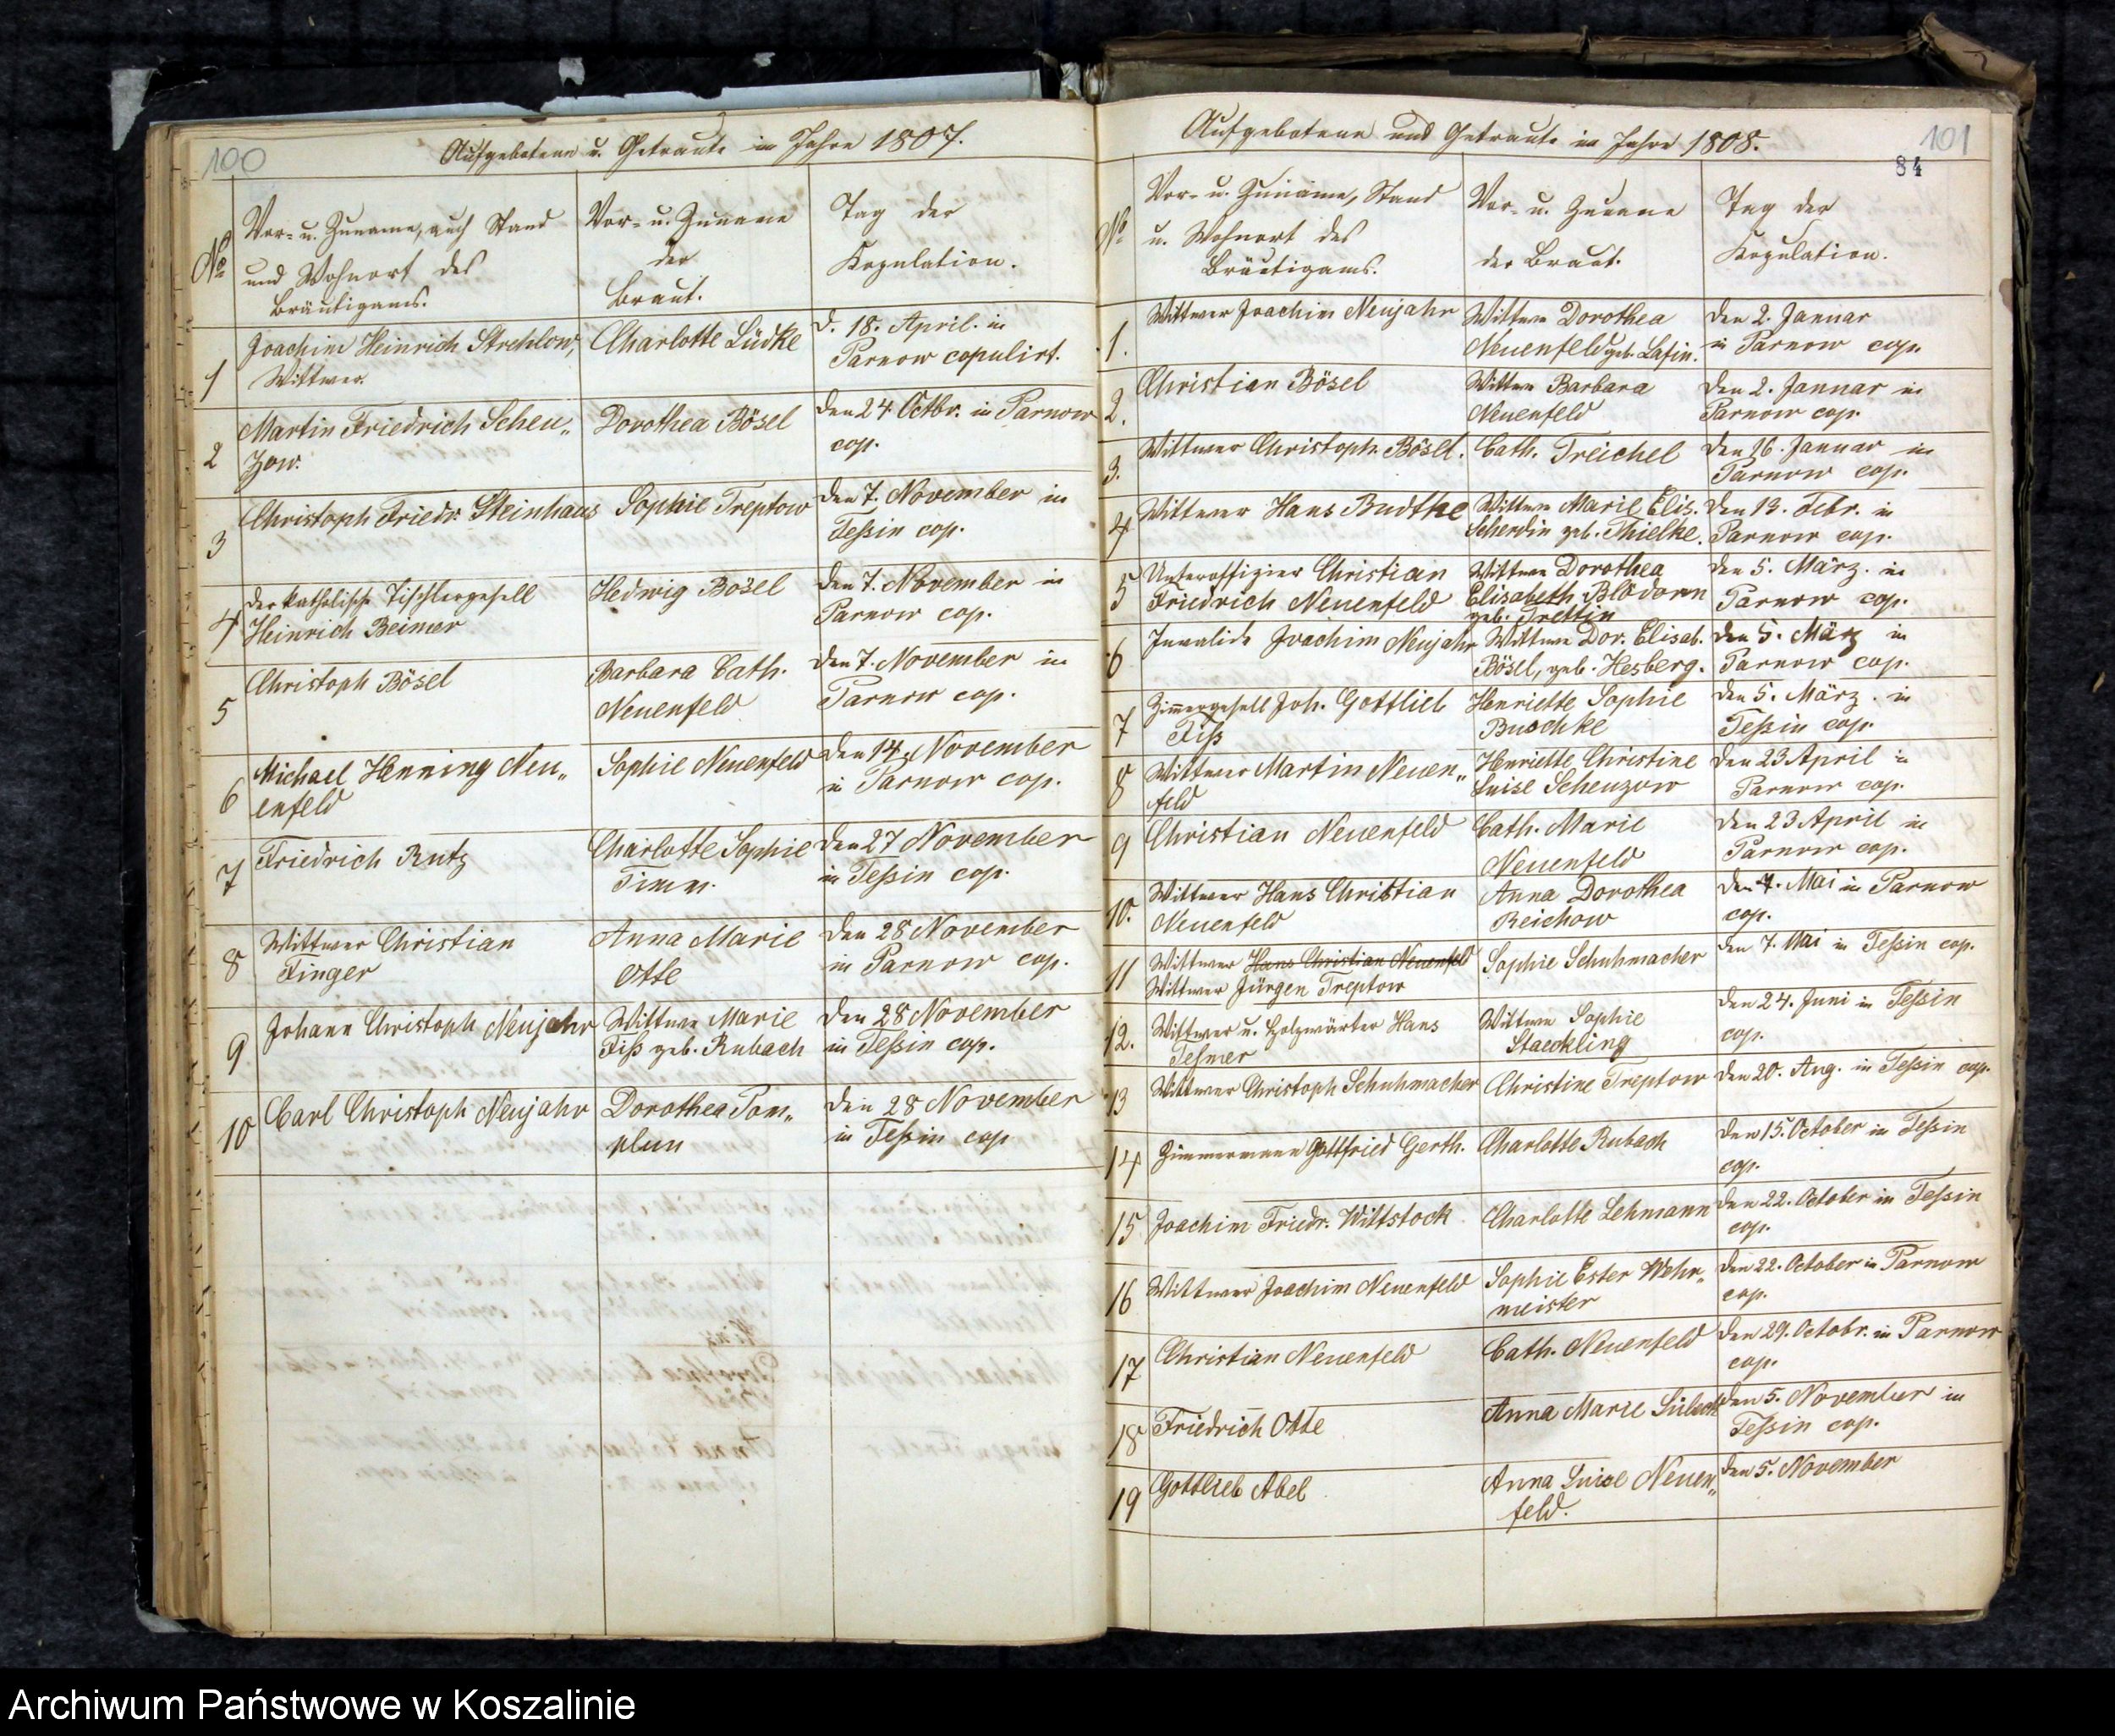 100
Aufgebotene u. Getraute im Jahre 1807.
No
Vor- u. Zuname, auch Stand
und Wohnort des
Bräutigams.
Vor- u. Zuname
der
Braut.
Tag der
Kopulation.
1
Joachim Heinrich Strehlow,
Wittwer.
Charlotte Lüdke
d. 18. April. in
Parnow copulirt.
2
Martin Friedrich Scheu„
zow.
Dorothea Bösel
den 24 Octbr. in Parnow
cop.
3
Christoph Friedr. Steinhaus
Sophie Treptow
den 7. November in
Teßin cop.
4
der katholische Tischlergesell
Heinrich Beimer
Hedwig Bösel
den 7. November in
Parnow cop.
5
Christoph Bösel
Barbara Cath.
Neuenfeld
den 7. November in
Parnow cop.
6
Michael Henning Neu„
enfeld
Sophie Neuenfeld
den 14. November
in Parnow cop.
7
Friedrich Rutz
Charlotte Sophie
Timm.
den 27 November
in Teßin cop.
8
Wittwer Christian
Finger
Anna Marie
Otte
den 28 November
in Parnow cop.
9
Johann Christoph Neujahr
Wittwe Marie
Fiß geb. Rubach
den 28 November
in Teßin cop.
10
Carl Christoph Neujahr
Dorothea Pom„
plun
den 28 November
in Teßin cop
101
84
Aufgebotene und Getraute im Jahre 1808.
No
Vor- u. Zuname, Stand
u. Wohnort des
Bräutigams.
Vor- u. Zuname
der Braut.
Tag der
Kopulation.
1.
Wittwer Joachim Neujahr
Wittwe Dorothea
Neuenfeld geb. Lafin.
den 2. Januar
in Parnow cop.
2.
Christian Bösel
Wittwe Barbara
Neuenfeld
den 2. Januar in
Parnow cop.
3.
Wittwer Christoph Bösel.
Cath. Treichel
den 16. Januar in
Parnow cop.
4
Wittwer Hans Budtke
Wittwe Marie Elis.
Scherdin geb. Thielke.
den 13. Febr. in
Parnow cop.
5
Unteroffizier Christian
Friedrich Neuenfeld
Wittwe Dorothea
Elisabeth Blödorn
geb. Trettin
den 5. März. in
Parnow cop.
6
Invalide Joachim Neujahr
Wittwe Dor. Elisab.
Bösel, geb. Hesberg.
den 5. März in
Parnow cop.
7
Zimmergesell Joh. Gottlieb
Fiß
Henriette Sophie
Buschke
den 5. März. in
Teßin cop.
8
Wittwer Martin Neuen„
feld
Henriette Christine
Luise Scheuzow
den 23 April in
Parnow cop.
9
Christian Neuenfeld
Cath. Marie
Neuenfeld
den 23 April in
Parnow cop.
10.
Wittwer Hans Christian
Neuenfeld
Anna Dorothea
Reichow
den 7. Mai in Parnow
cop.
11
Wittwer Hans Christian Neuenfeld
Wittwer Jürgen Treptow
Sophie Schuhmacher
den 7. Mai in Teßin cop.
12.
Wittwer u. Holzwärter Hans
Teßmer
Wittwe Sophie
Staeckling
den 24. Juni in Teßin
cop.
13
Wittwer Christoph Schuhmacher
Christine Treptow
den 20. Aug. in Teßin cop.
14
Zimmermann Gottfried Gerth.
Charlotte Rubach
den 15. October in Teßin
cop.
15
Joachim Friedr. Wittstock
Charlotte Lehmann
den 22. October in Teßin
cop.
16
Wittwer Joachim Neuenfeld
Sophie Ester Wehr„
meister
den 22. October in Parnow
cop.
17
Christian Neuenfeld
Cath. Neuenfeld
den 29. Octobr. in Parnow
cop.
18
Friedrich Otte
Anna Marie
den 5. November in
Teßin cop.
19
Gottlieb Abel
Anna Luise Neuen„
feld.
den 5. November
Archiwum Państwowe w Koszalinie